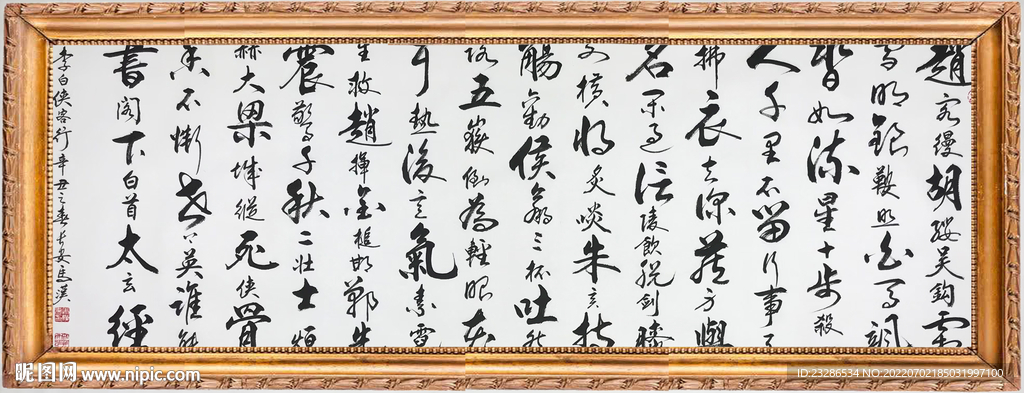 趙客縵胡纓吳鈎霜
雪明銀鞍照白馬颯
沓如流星十步殺
人千里不留行事了
拂衣去深藏身與
名閒過信陵飲脫劍膝
前橫將炙啖朱亥持
觴勸侯嬴三杯吐然
諾五嶽倒為輕眼花
耳熱後意氣素霓
生救趙揮金槌邯鄲先
震驚千秋二壯士烜
赫大梁城縱死俠骨
香不慚世上英誰能
書閣下白首太玄經
李白俠客行辛丑之春長安馬漢
昵图网 www.nipic.com
ID:23286534 NO:20220702185031997100